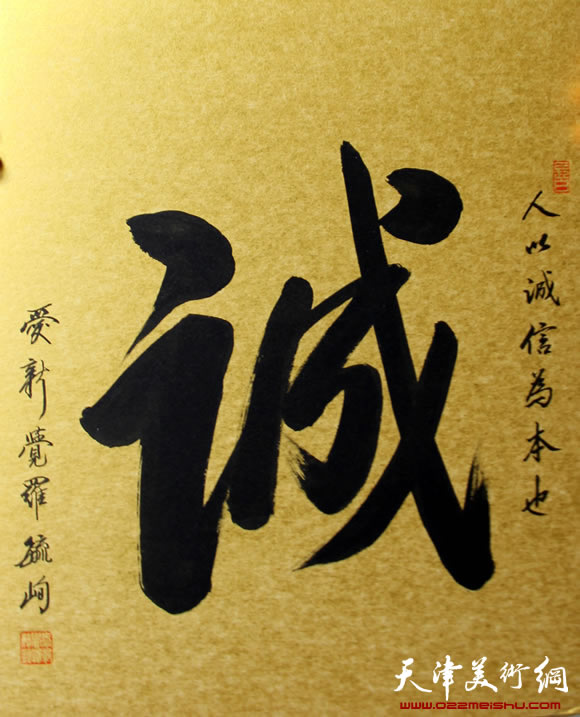 人以诚信為本也
诚
愛新覺羅毓峋
天津美術網
www.022meishu.com